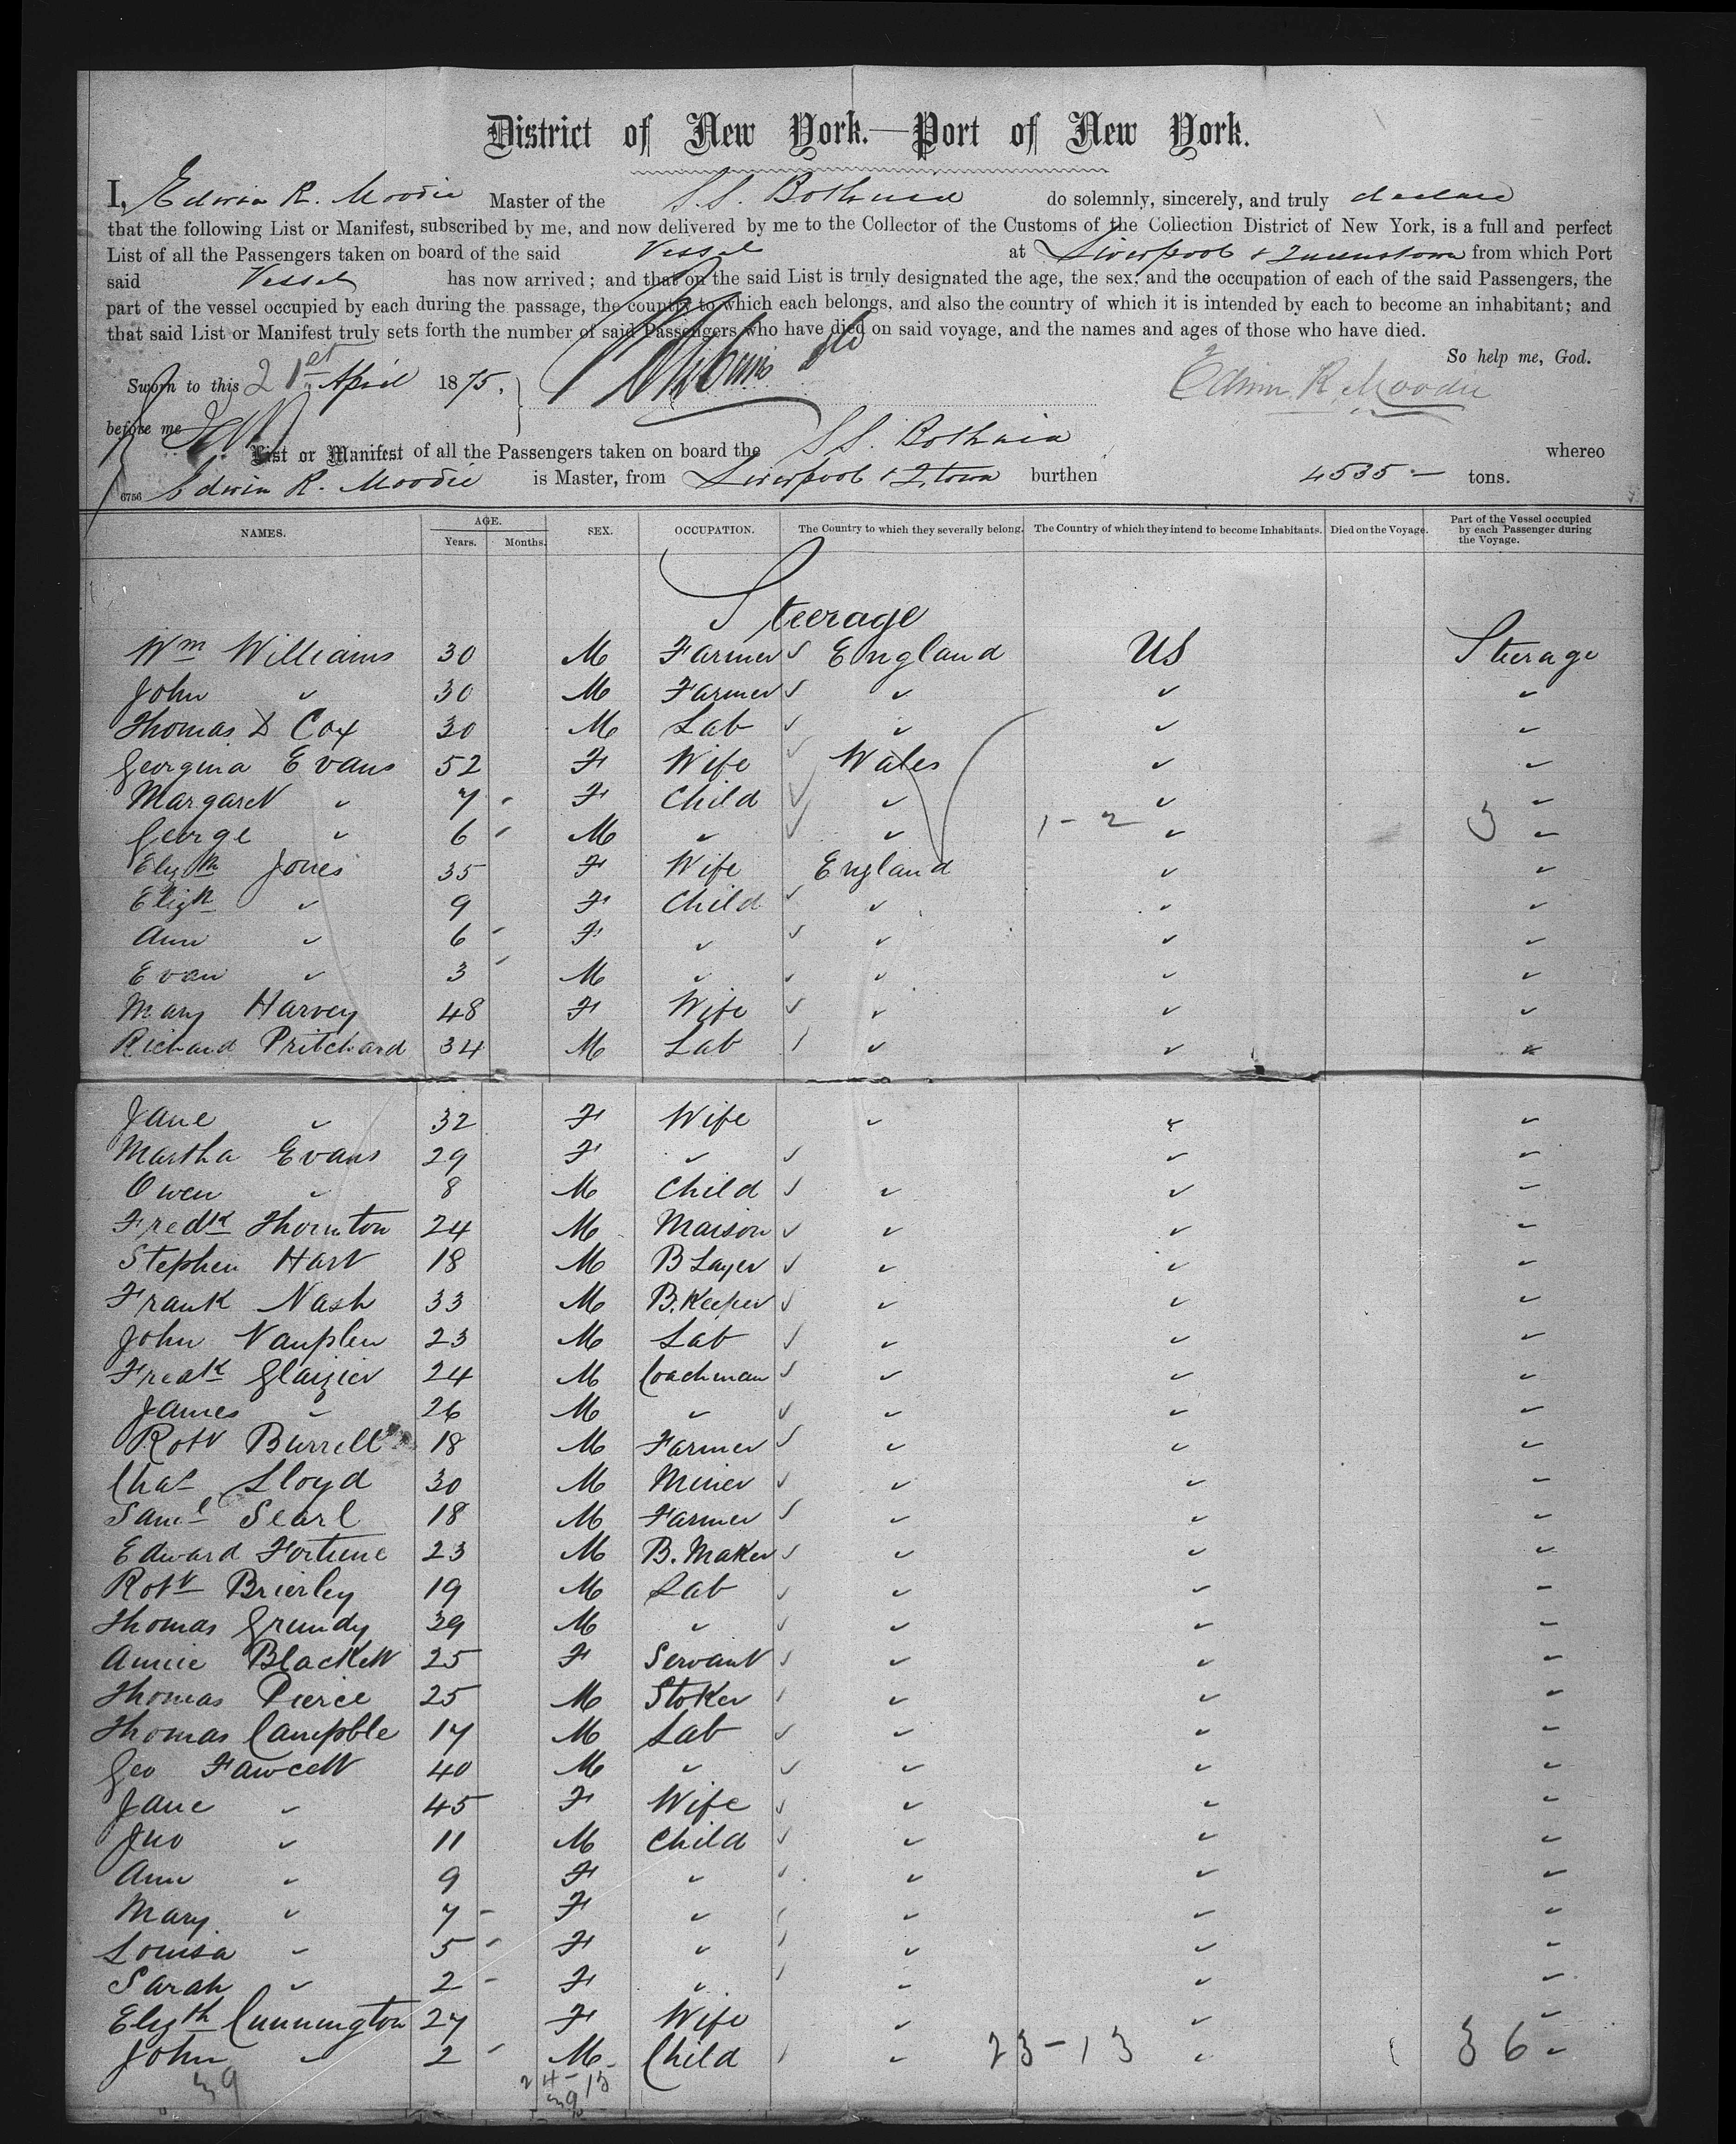 District of New York.—Port of New York.
I, Edwin R. Moodie Master of the S.S. Bothnia do solemnly, sincerely, and truly declare
that the following List or Manifest, subscribed by me, and now delivered by me to the Collector of the Customs of the Collection District of New York, is a full and perfect
List of all the Passengers taken on board of the said Vessel at Liverpool & Queenstown from which Port
said Vessel has now arrived; and that on the said List is truly designated the age, the sex, and the occupation of each of the said Passengers, the
part of the vessel occupied by each during the passage, the country to which each belongs, and also the country of which it is intended by each to become an inhabitant; and
that said List or Manifest truly sets forth the number of said Passengers who have died on said voyage, and the names and ages of those who have died.
So help me, God.
Sworn to this 21st April 1875. Edwin R. Moodie
before me
List or Manifest of all the Passengers taken on board the S.S. Bothnia whereo
6756 Edwin R. Moodie is Master, from Liverpool & Q.town burthen 4535 — tons.
NAMES. AGE. Years. Months. SEX. OCCUPATION. The Country to which they severally belong. The Country of which they intend to become Inhabitants. Died on the Voyage. Part of the Vessel occupied by each Passenger during the Voyage.
Steerage
Wm Williams 30 M Farmer ✓ England US Steerage
John " 30 M Farmer ✓ " " "
Thomas D Cox 30 M Lab ✓ " " "
Georgina Evans 52 F Wife ✓ Wales " "
Margaret " 7 - F Child ✓ " " "
George " 6 - M " ✓ " 1-2 " 3 "
Elizth Jones 35 F Wife England " "
Elizh " 9 F Child ✓ " " "
Ann " 6 - F " ✓ " " "
Evan " 3 - M " ✓ " " "
Mary Harvey 48 F Wife ✓ " " "
Richard Pritchard 34 M Lab / " " "
Jane " 32 F Wife " " "
Martha Evans 29 F " ✓ " "
Owen " 8 M Child ✓ " " "
Fredk Thornton 24 M Maison ✓ " " "
Stephen Hart 18 M B Layer ✓ " " "
Frank Nash 33 M B. Keeper ✓ " " "
John Vauplew 23 M Lab ✓ " " "
Fredk Glaizier 24 M Coachman ✓ " " "
James " 26 M " ✓ " " "
Robt Burrell 18 M Farmer ✓ " " "
Chas Lloyd 30 M Miner ✓ " " "
Saml Searl 18 M Farmer ✓ " " "
Edward Fortune 23 M B. Maker ✓ " " "
Robt Brierley 19 M Lab ✓ " " "
Thomas Grundy 39 M " ✓ " " "
Annie Blackett 25 F Servant ✓ " " "
Thomas Pierce 25 M Stoker / " " "
Thomas Campble 17 M Lab ✓ " " "
Geo Fawcett 40 M " ✓ " " "
Jane " 45 F Wife ✓ " " "
Jno " 11 M Child ✓ " " "
Ann " 9 F " / " " "
Mary " 7 - F " / " " "
Louisa " 5 - F " / " " "
Sarah " 2 - F " / " " "
Elizth Cunnington 27 F Wife " " "
John " 2 - M Child / " 23-13 " 36 "
39 24-15
39